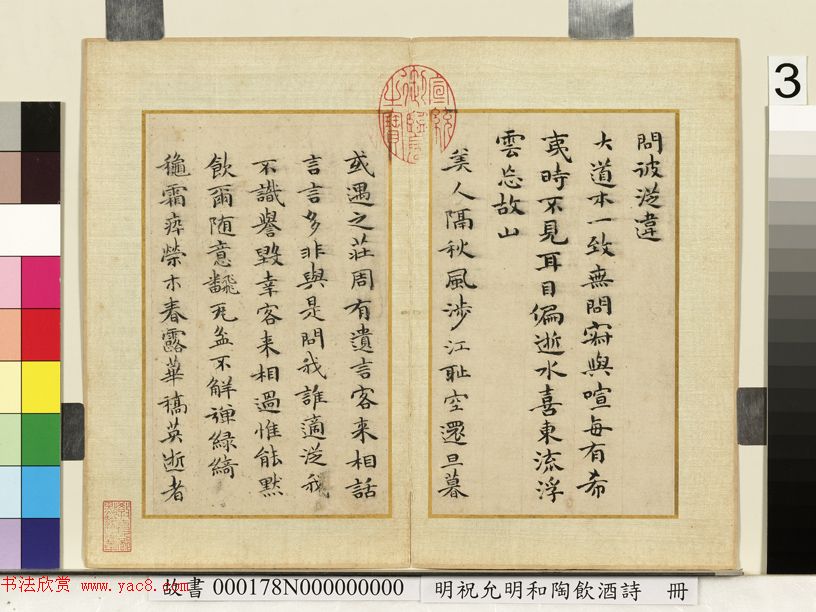 問彼從違
大道本一致無問窮與喧每有希
夷時不見耳目偏逝水喜東流浮
雲忘故山
美人隔秋風涉江恥空還旦暮
或遇之莊周有遺言客來相話
言言多非與是問我誰適從我
不識譽毀幸客來相過惟能默
飲爾随意飜瓦盆不解彈緑綺
穐霜瘁榮木春露華槁英逝者
宣統御覽之寶
3
书法欣赏 www.yac8.com
故書 000178N000000000
明祝允明和陶飲酒詩 冊